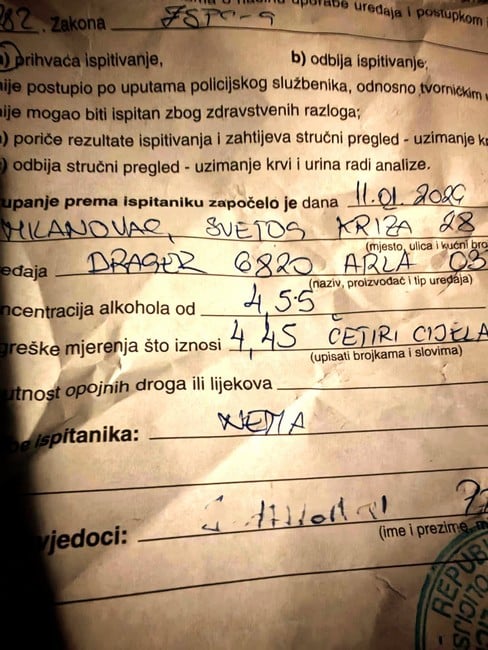 282. Zakona ZSPC-a
a) prihvaća ispitivanje, b) odbija ispitivanje;
nije postupio po uputama policijskog službenika, odnosno tvorničkim
nije mogao biti ispitan zbog zdravstvenih razloga;
) poriče rezultate ispitivanja i zahtijeva stručni pregled - uzimanje
) odbija stručni pregled - uzimanje krvi i urina radi analize.
upanje prema ispitaniku započelo je dana 11.01.2024
MIKANOVAC, SVETOG KRIŽA 28
(mjesto, ulica i kućni bro
eđaja DRAGER 6820 ARLA 03
(naziv, proizvođač i tip uređaja)
ncentracija alkohola od 4,55
greške mjerenja što iznosi 4,45 ČETIRI CIJELA
(upisati brojkama i slovima)
utnost opojnih droga ili lijekova
be ispitanika: NEMA
vjedoci:
(ime i prezime,
REPUB